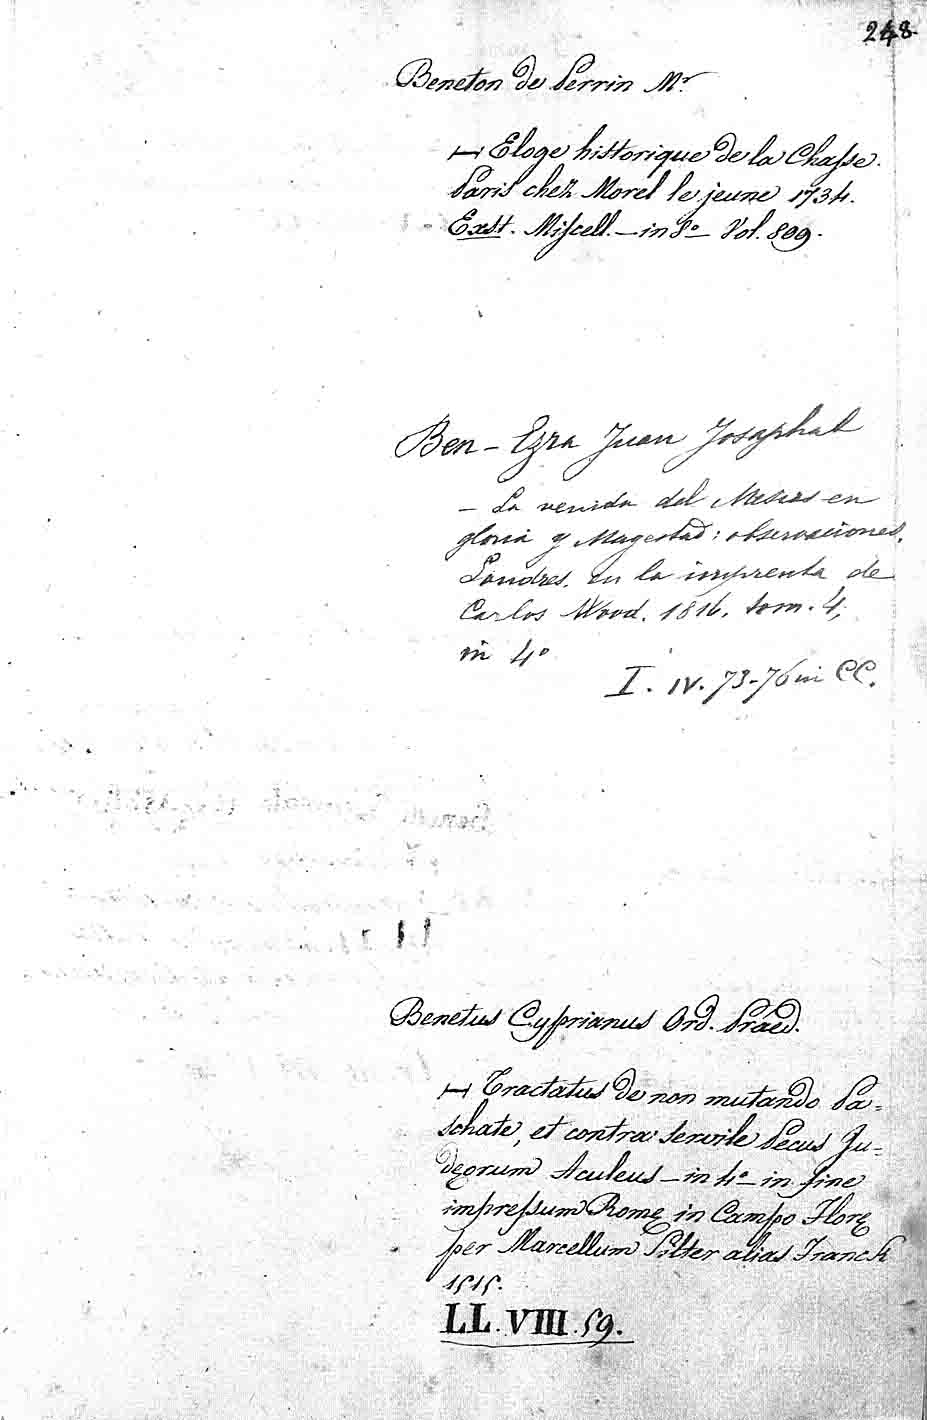 248.
Beneton de Perrin Mr.
— Eloge historique de la Chasse.
Paris chez Morel le jeune 1734.
Exst. Miscell. — in 8º — Vol. 899.
Ben - Ezra Juan Josaphat
— La venida del Mesias en
gloria y Magestad: observaciones.
Londres. en la imprenta de
Carlos Wood. 1816. tom. 4.
in 4º
I. IV. 73-76 in CC.
Benetus Cyprianus Ord. Præd.
— Tractatus de non mutando Pa=
schate, et contra servile Pecus Ju=
dęorum Aculeus — in 4º — in fine
impressum Romę in Campo Florę
per Marcellum Silber alias Franck
1515.
LL. VIII. 59.